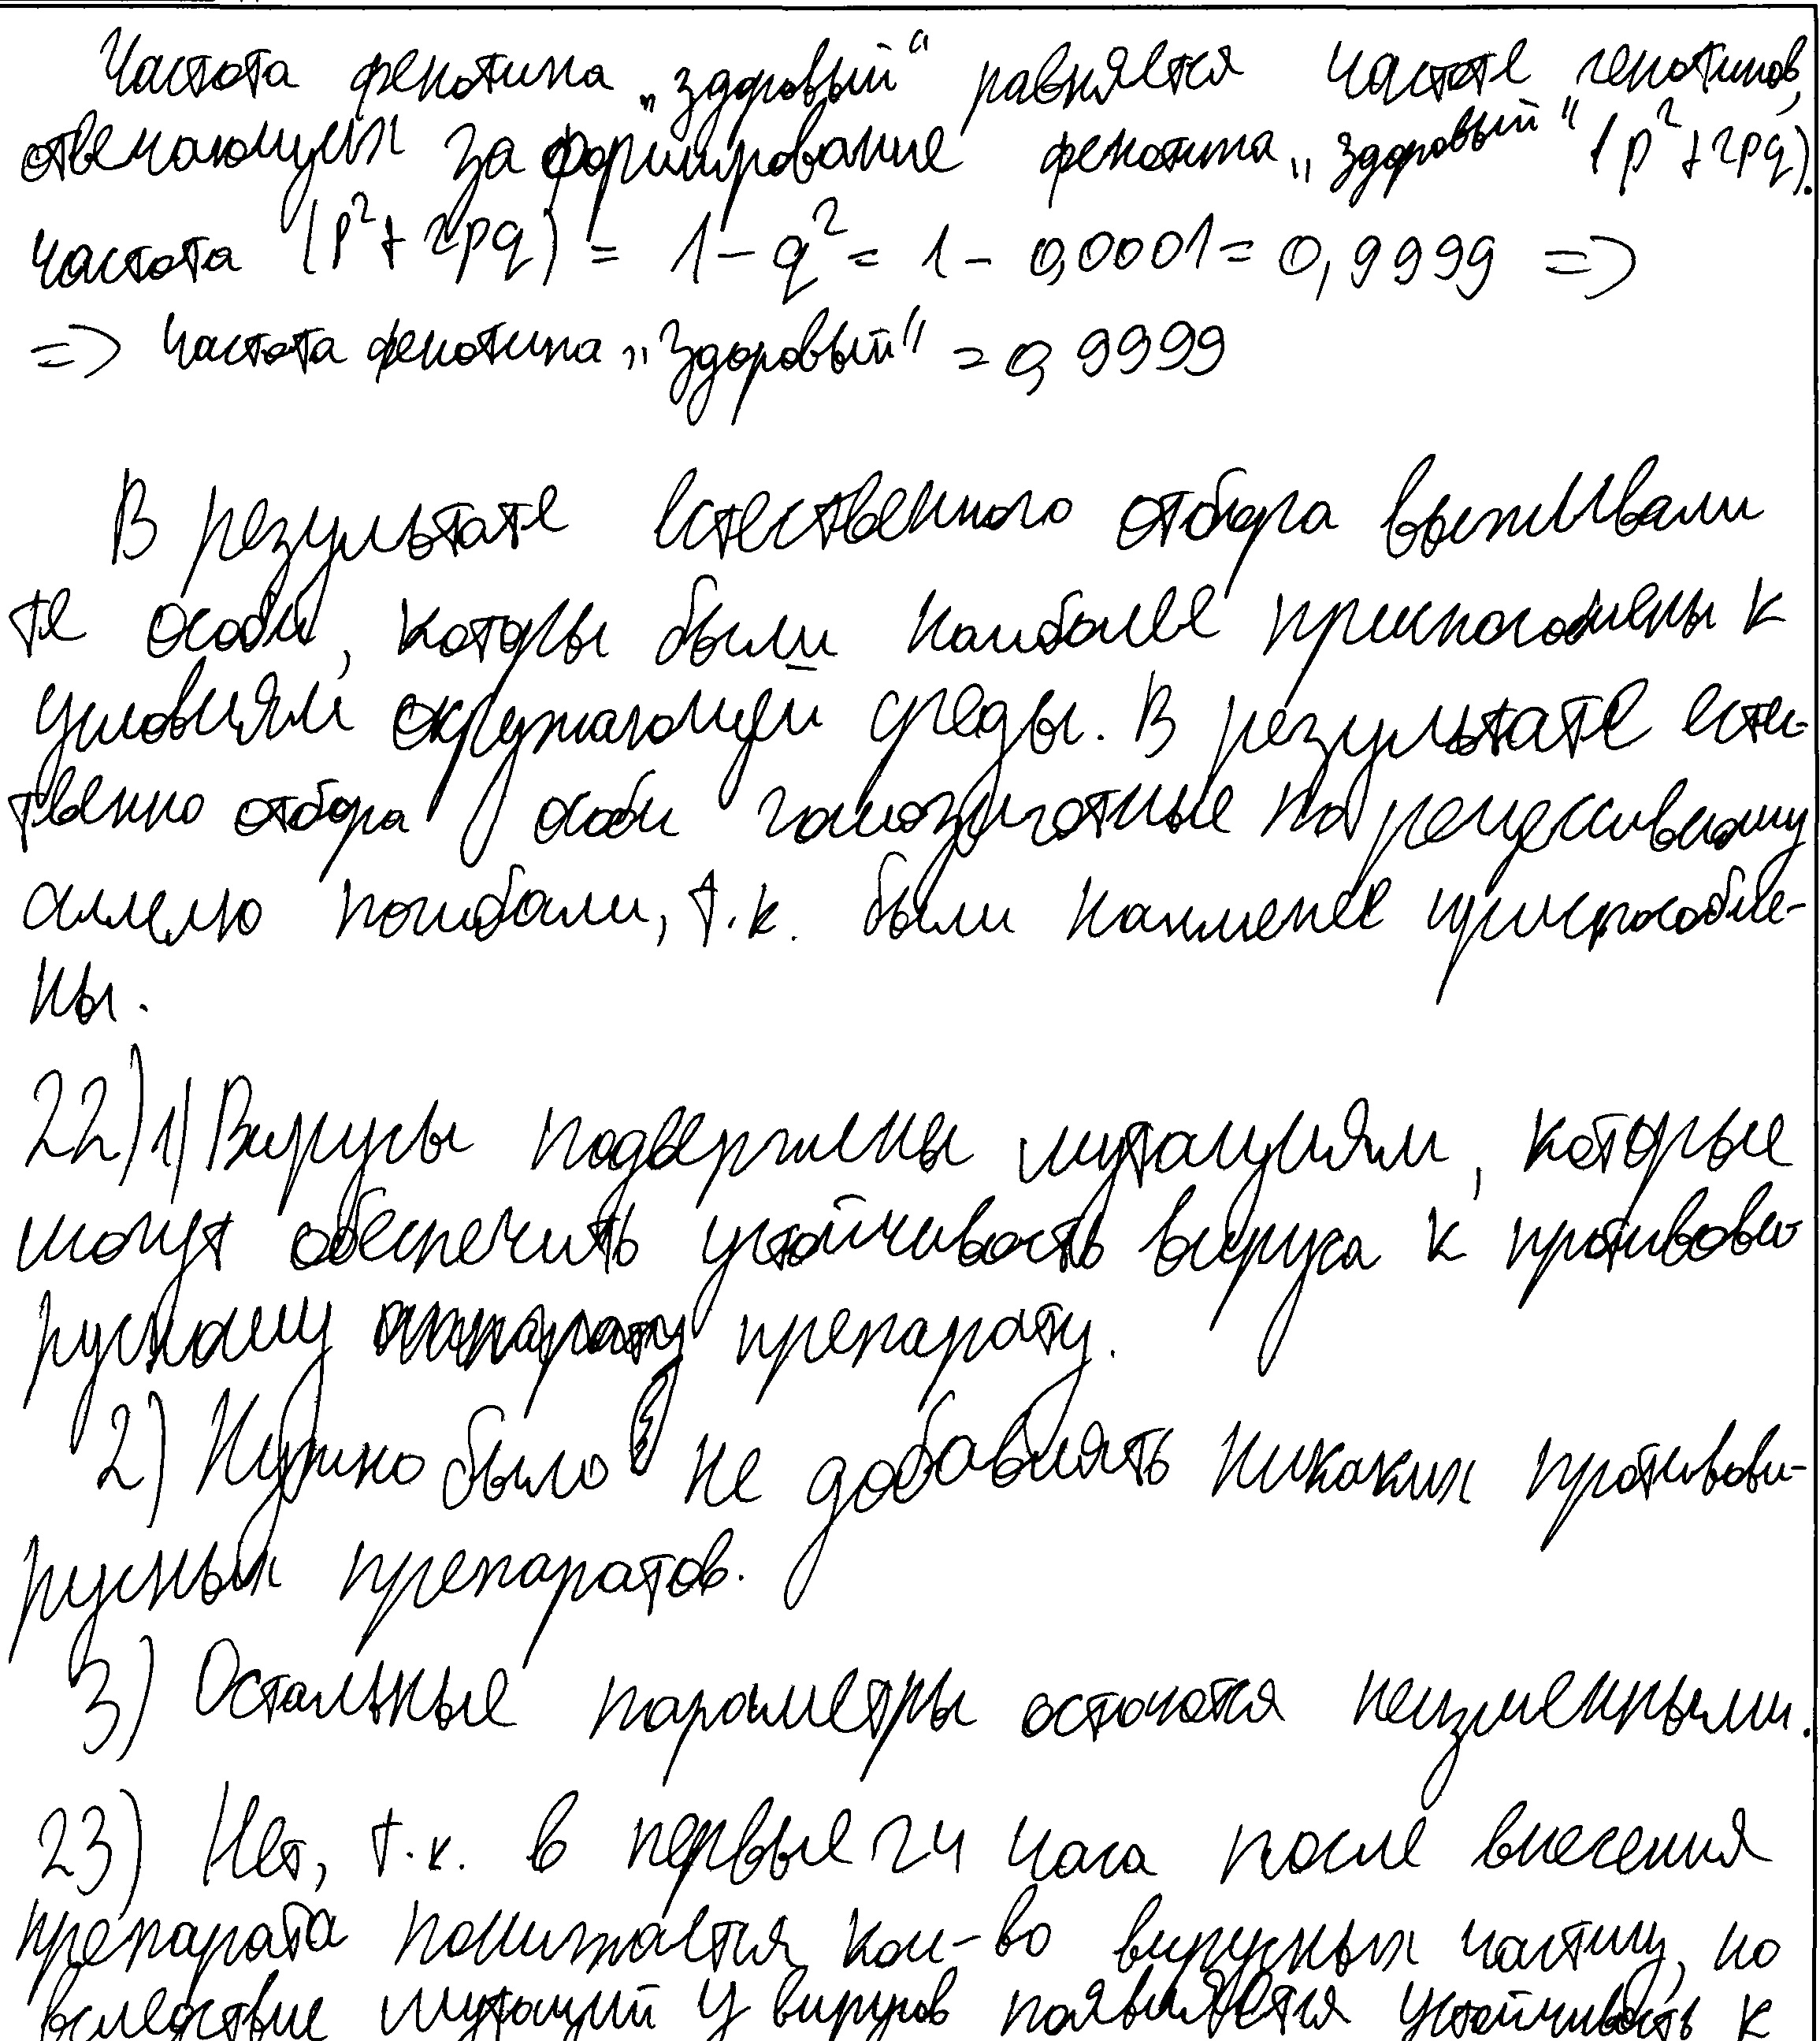 Частота фенотипа „здоровый“ равняется частоте генотипов,
отвечающих за формирование фенотипа „здоровый“ (p²+2pq).
частота (p²+2pq) = 1 - q² = 1 - 0,0001 = 0,9999 =>
=> частота фенотипа „здоровый“ = 0,9999
В результате естественного отбора выживали
те особи, которы были наиболее приспособлены к
условиям окружающей среды. В результате естес-
твенно отбора особи гомозиготные по рецессивному
аллелю погибали, т.к. были наименее приспособле-
ны.
22) 1) Вирусы подвержены мутациям, которые
могут обеспечить устойчивость вируса к противови
русному препарату.
2) Нужно было не добавлять никаких противови-
русных препаратов.
3) Остальные параметры остаются неизменными.
23) Нет, т.к. в первые 24 часа после внесения
препарата понижается кол-во вирусных частиц, но
вследствие мутаций у вирусов появляется устойчивость к